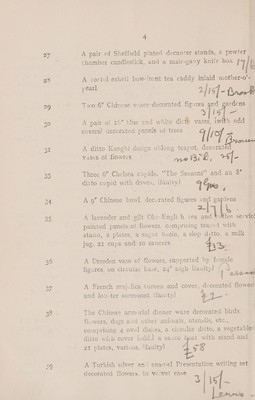 4
27 A pair of Sheffield plated decanter stands, a pewter
chamber candlestick, and a mahogany knife box 17/6
28 A tortoiseshell bow-front tea caddy inlaid mother-o'-
pearl 2/15/-
29 Two 6" Chinese vases decorated figures and gardens
3/15/-
30 A pair of 10" blue and white ditto vases, with odd
covers decorated panels of trees 9/10/-
31 A ditto Kanghi design oblong teapot, decorated
vases of flowers no Bid, 25/-
33 Three 6" Chelsea cupids, "The Seasons" and an 8"
ditto cupid with doves, (faulty) 9 gns,
34 A 9" Chinese bowl decorated figures and gardens
2/7/6
35 A lavender and gilt Old English tea and coffee service
painted panels of flowers, comprising teapot with
stand, 2 plates, a sugar basin, a slop ditto, a milk
jug, 21 cups and 10 saucers £33
36 A Dresden vase of flowers, supported by female
figures, on circular base, 24" high (faulty)
37 A French porcelain tureen and cover, decorated flowers
and lobster ornament (faulty)
38 The Chinese armorial dinner ware decorated birds
flowers, dogs and other animals, utensils, etc.,
comprising 4 oval dishes, a circular ditto, a vegetable
ditto with cover and a sauce boat with stand and
21 plates, various, (faulty) £58
39 A Turkish silver and enamel Presentation writing set
decorated flowers, in velvet case 3/15/-
Lewis